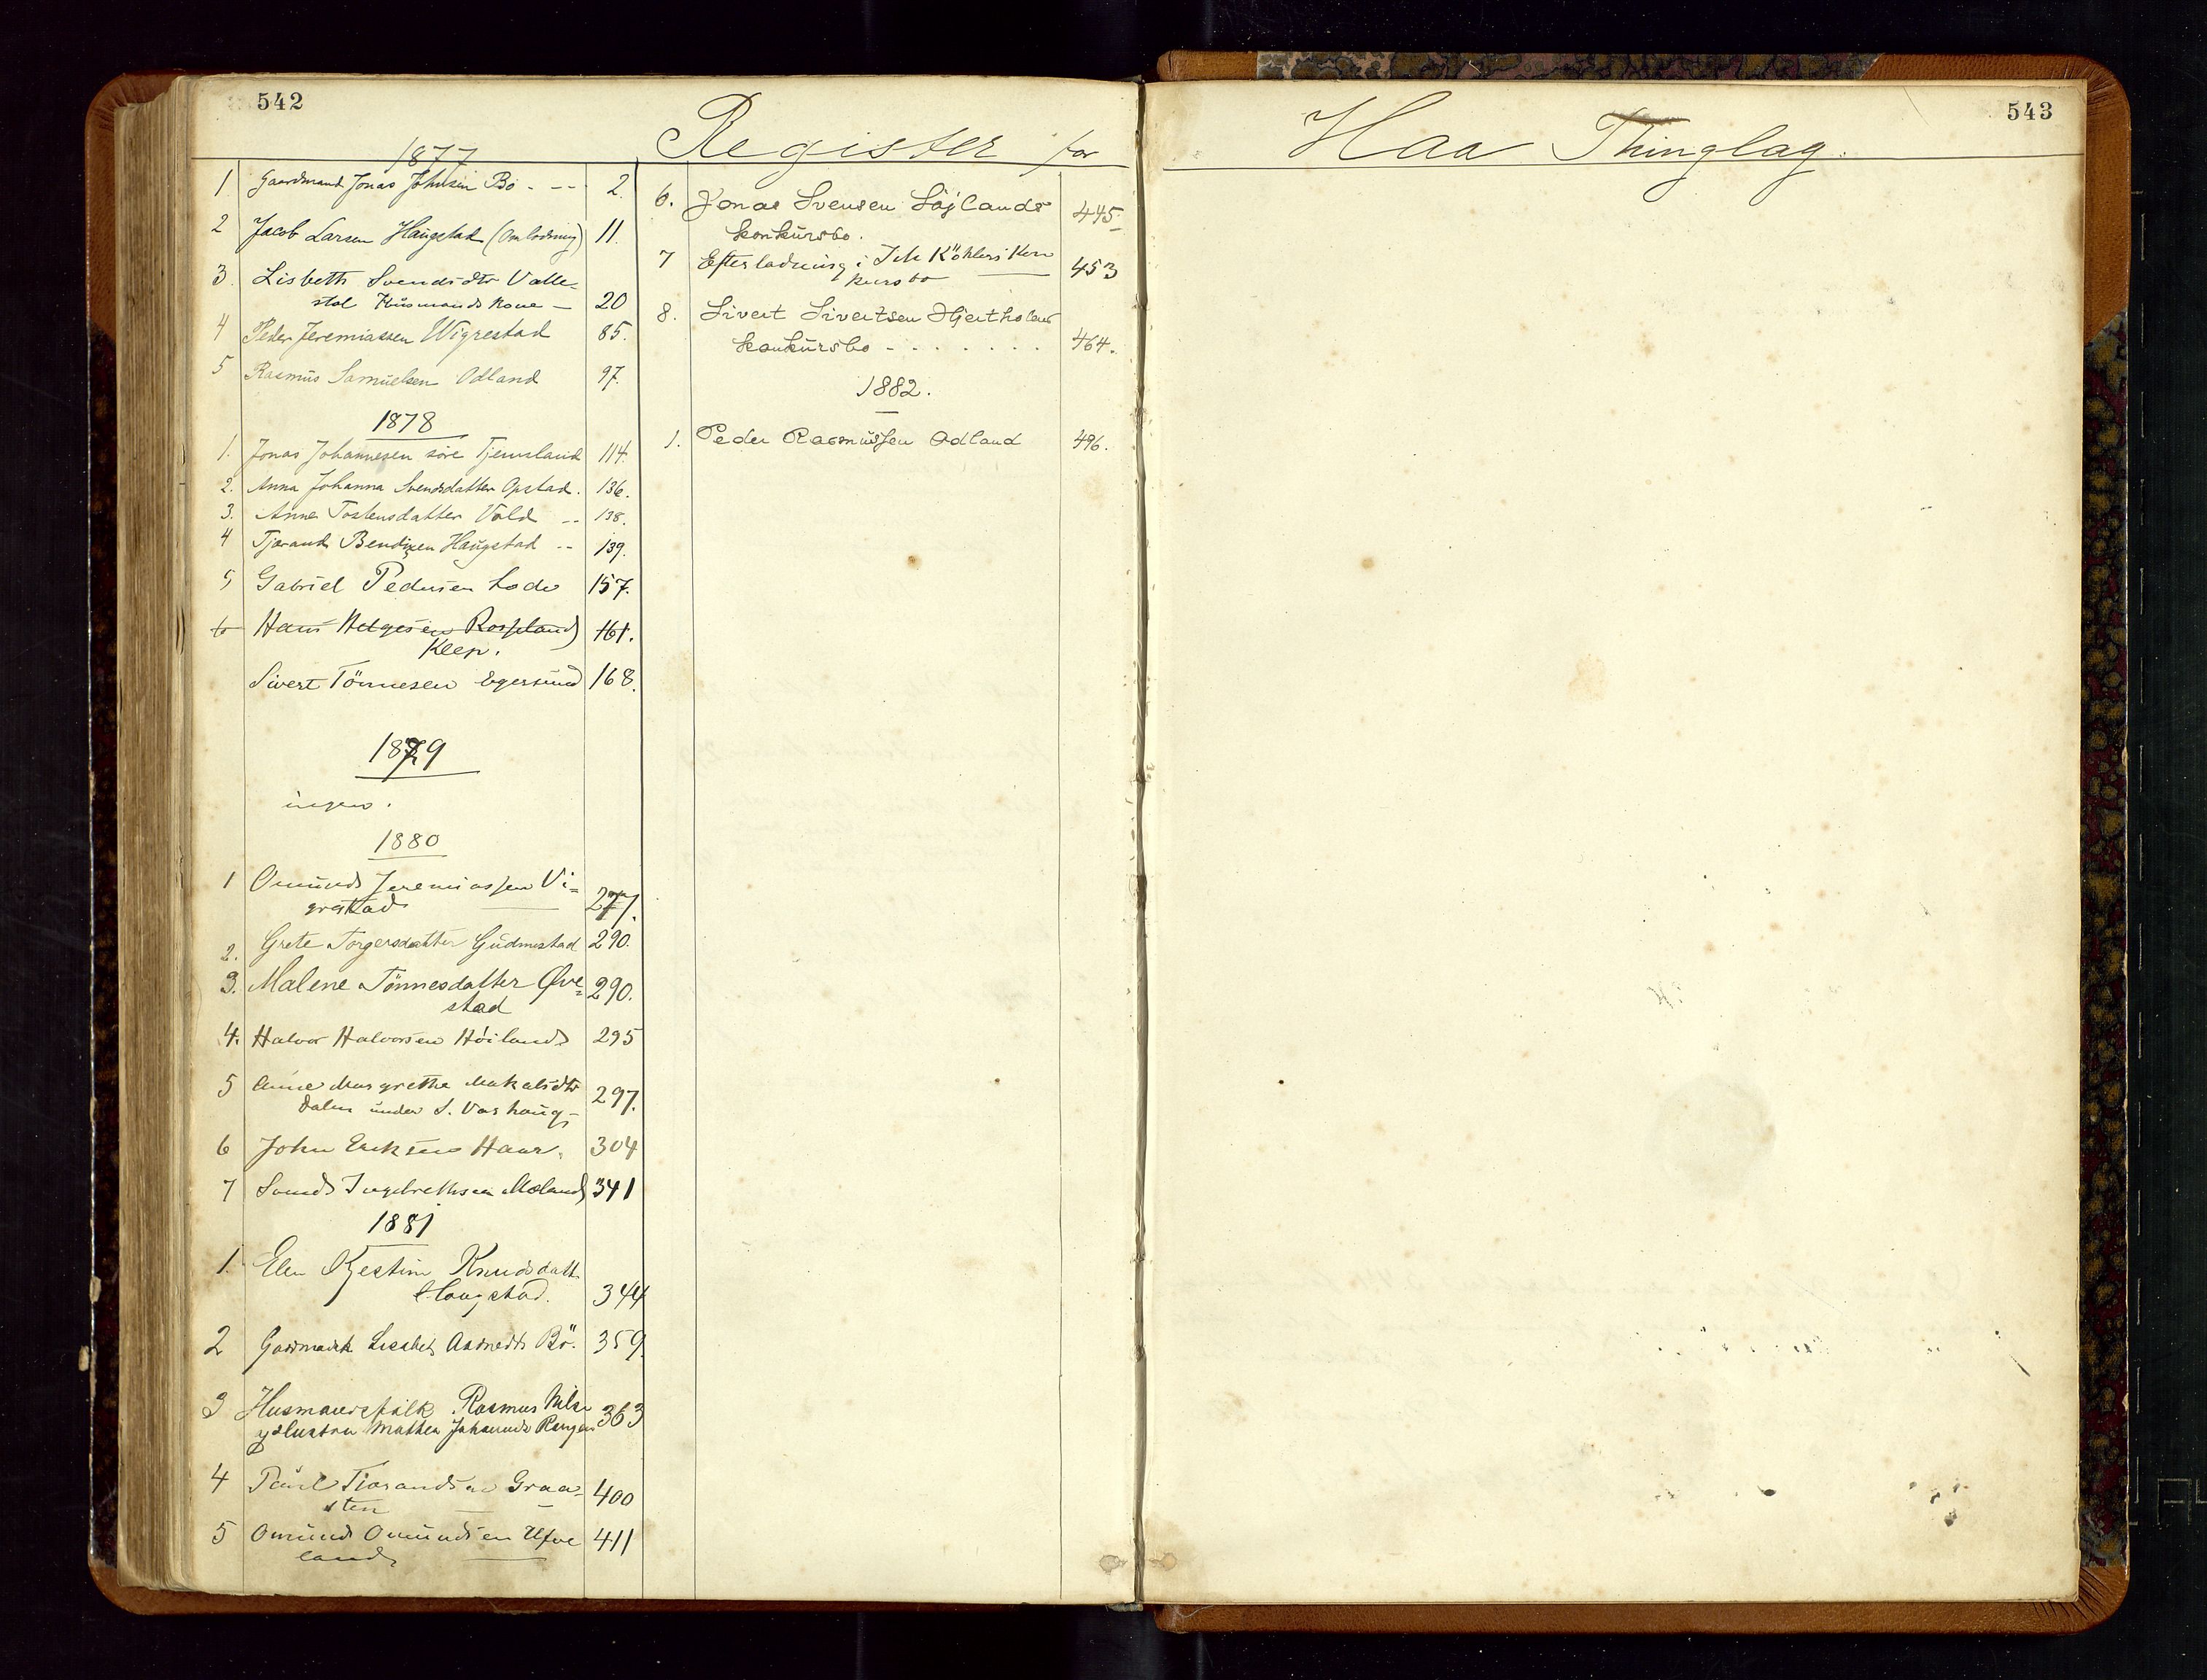 542
Register for
1877
1 Gaardmand Jonas Johnsen Bö - -- 2.
2 Jacob Larsen Haugstad (Omlodning) 11.
3 Lisbeth Svendsdtr Valle-
stol Husmands Kone - 20
4 Peder Jeremiassen Wigrestad 85.
5 Rasmus Samuelsen Odland 97.
1878
1. Jonas Johannesen söre Tjemsland 114.
2. Anna Johanna Svendsdatter Opstad. 136.
3. Anne Tostensdatter Vold -- 138.
4 Tjorand Bendixen Haugstad -- 139.
5 Gabriel Pedersen Lode 157.
6 Hans Helgesen Rosseland 161.
Klep.
Sivert Tönnesen Egersund 168.
1879
ingen.
1880
1 Omund Jeremiassen Vi=
grestad 277.
2. Grete Torgersdatter Gudmestad 290.
3. Malene Tönnesdatter Øve=
stad 290.
4. Halvor Halvorsen Höiland 295
5 Anne Margrethe dtr
Dalen under S. Varhaug 297.
6 John Eriksen Haar. 304
7 Svend Ingebrethsen Moland 341
1881
1. Elen Kjestine Knudsdatt.
Haugstad. 344
2 Lisabet Bö. 359.
3 Husmandsfolk Rasmus Nils
og Hustru Mathea 363
4 Paul Tjorandsen Graa-
sten 400
5 Omund Omundsen Ufve
land 411
6. Jonas Svensen Söjlands
konkursbo. 445.
7 Efterlodning i Joh Köhlers Kon
kursbo 453
8. Sivert Sivertsen Hjertholms
konkursbo - . . . . . . . 464.
1882.
1. Peder Rasmussen Odland 496.
543
Haa Thinglag.